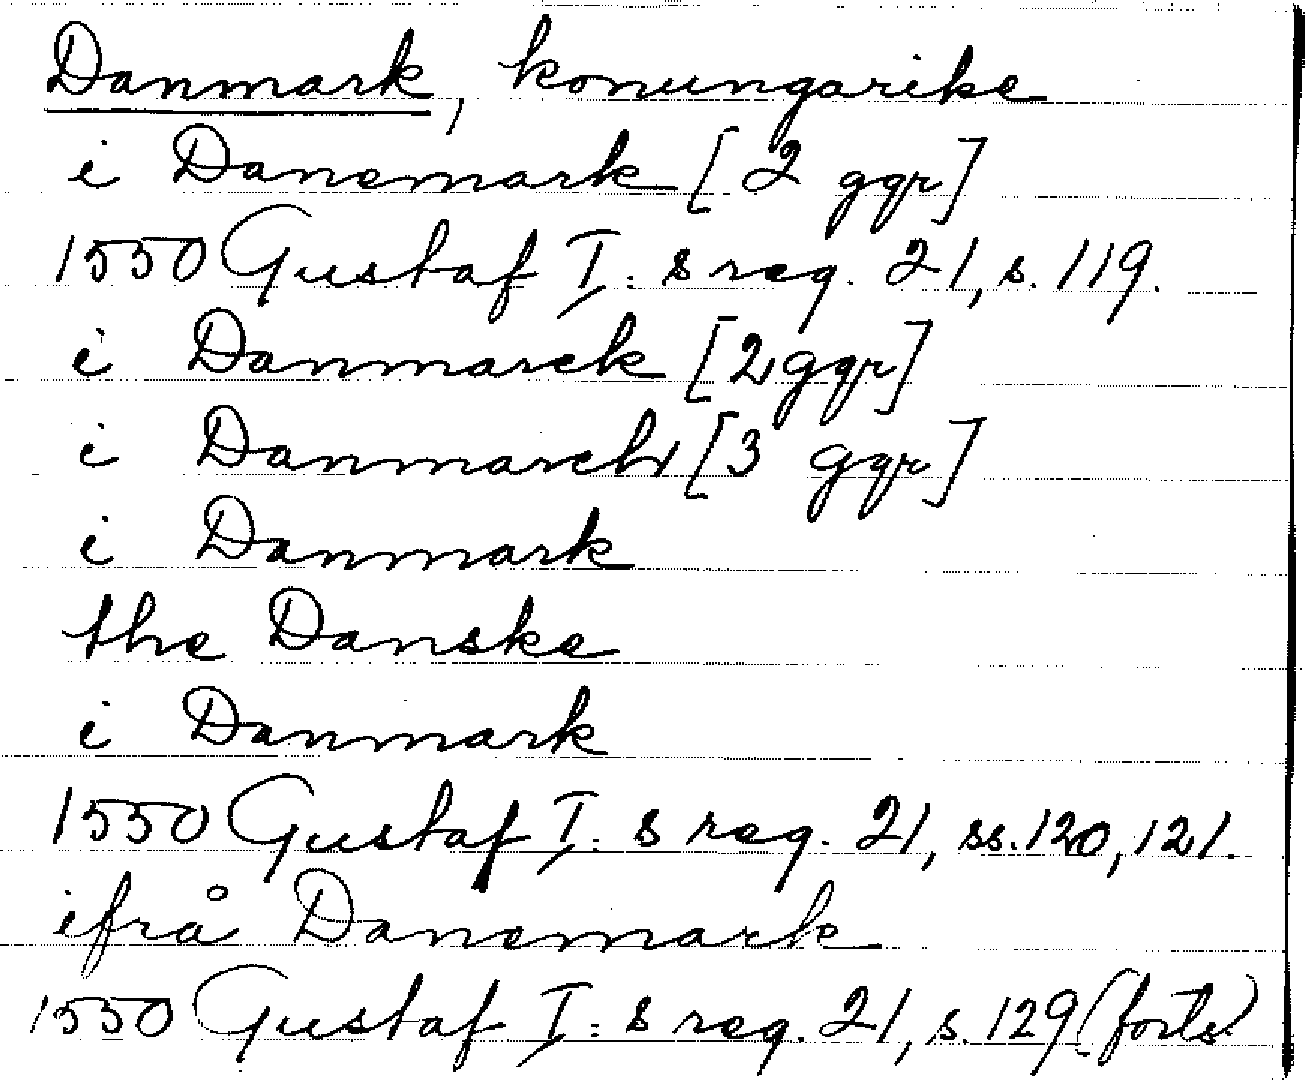 Danmark, konungarike
i Danemark [2 ggr]
1550 Gustaf I:s reg. 21, s. 119.
i Danmarck [2 ggr]
i Danmarch [3 ggr]
i Danmark
the Danske
i Danmark
1550 Gustaf I:s reg. 21, ss. 120, 121.
ifrå Danemark
1550 Gustaf I:s reg. 21, s. 129 (forts)